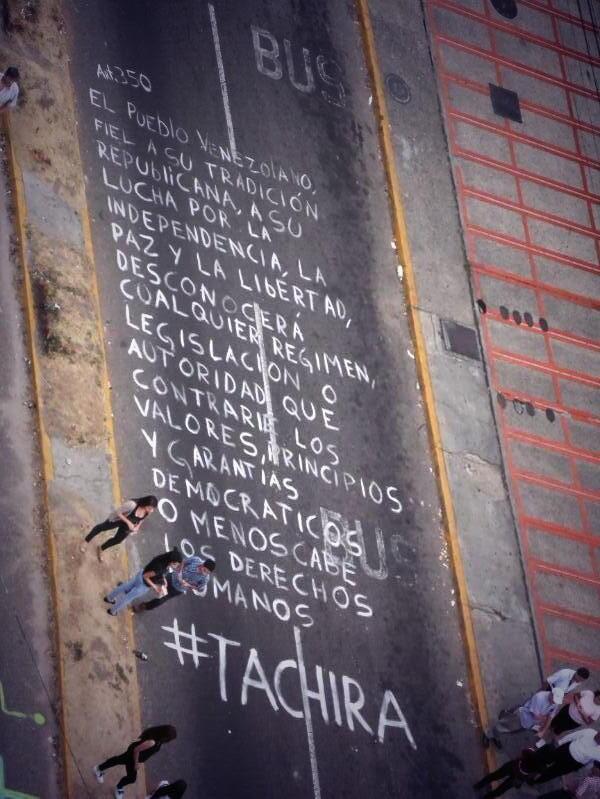 BUS
Art.350
EL PUEBLO VENEZOLANO,
FIEL A SU TRADICIÓN
REPUBLICANA, A SU
LUCHA POR LA
INDEPENDENCIA, LA
PAZ Y LA LIBERTAD,
DESCONOCERÁ
CUALQUIER REGIMEN,
LEGISLACION O
AUTORIDAD QUE
CONTRARIE LOS
VALORES, PRINCIPIOS
Y GARANTÍAS
DEMOCRATICOS
O MENOSCABE
BUS
LOS DERECHOS
MANOS
#TACHIRA